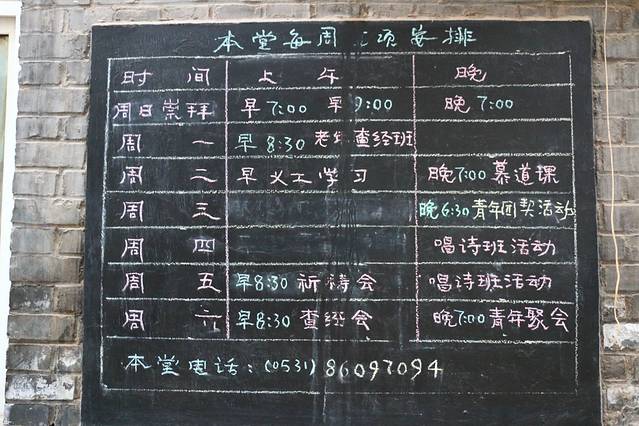 本堂每周 项安排
时 间 上 午 晚
周日崇拜 早7:00 早9:00 晚7:00
周 一 早8:30 老年查经班
周 二 早义工学习 晚7:00慕道课
周 三 晚6:30青年团契活动
周 四 唱诗班活动
周 五 早8:30 祈祷会 唱诗班活动
周 六 早8:30 查经会 晚7:00青年聚会
本堂电话:(0531)86097094